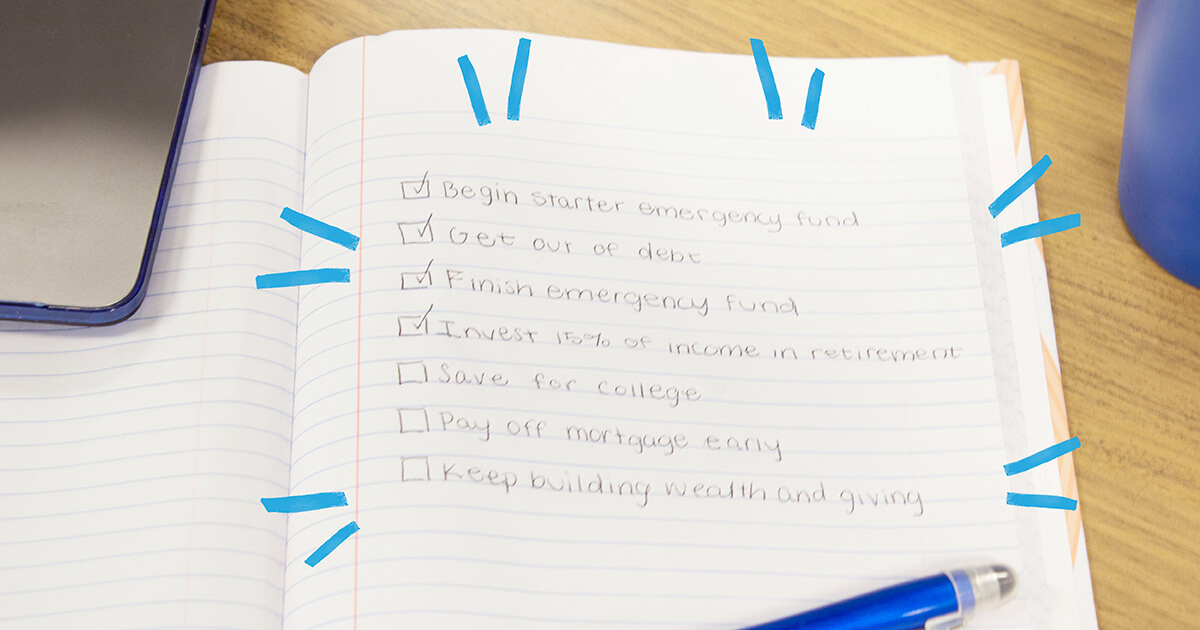 Begin starter emergency fund
Get out of debt
Finish emergency fund
Invest 15% of income in retirement
Save for college
Pay off mortgage early
Keep building wealth and giving